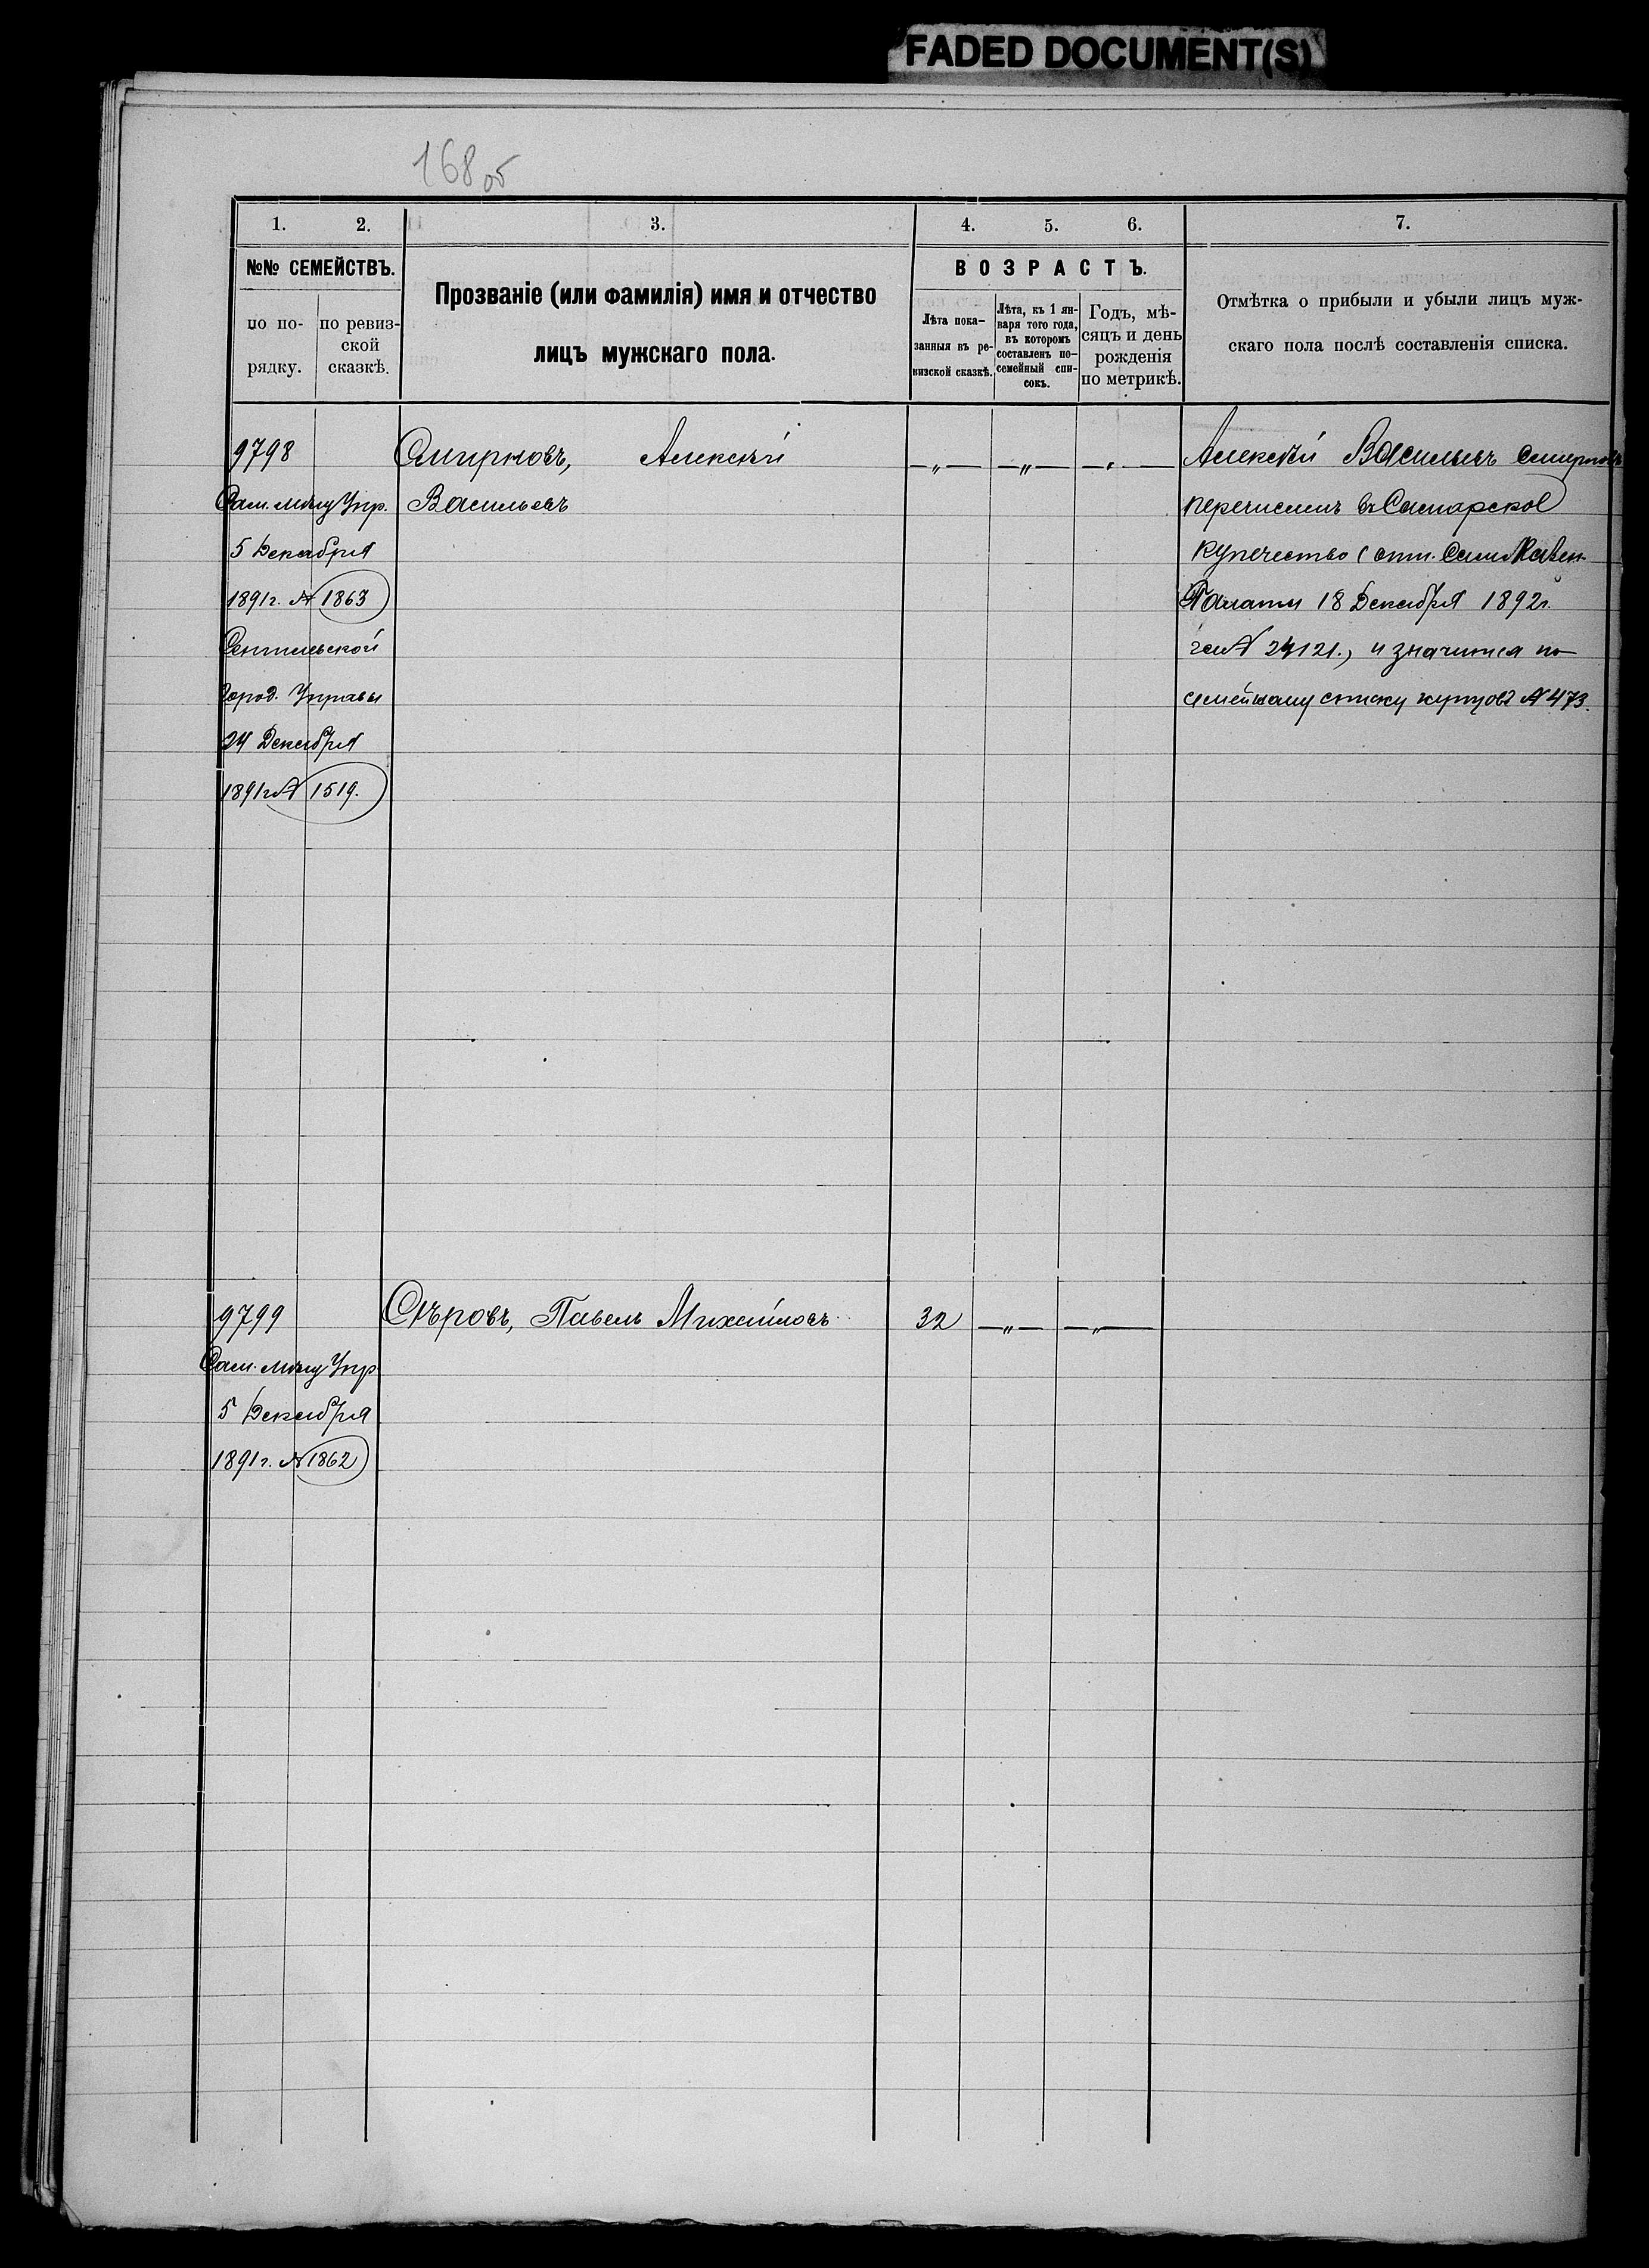 FADED DOCUMENT(S)
168 об
1. 2. 3. 4. 5. 6. 7.
№№ СЕМЕЙСТВЪ.
по по-
рядку.
по ревиз-
ской
сказкѣ.
Прозваніе (или фамилія) имя и отчество
лицъ мужскаго пола.
ВОЗРАСТЪ.
Лѣта пока-
занныя въ ре-
визской сказкѣ.
Лѣта, къ 1 ян-
варя того года,
въ которомъ
составленъ по-
семейный спи-
сокъ.
Годъ, мѣ-
сяцъ и день
рожденія
по метрикѣ.
Отмѣтка о прибыли и убыли лицъ муж-
скаго пола послѣ составленія списка.
9798
Сам. мѣщ Упр.
5 Декабря
1891г. № 1863
город. Управы
24 Декабря
1891г № 1519.
Смирновъ, Алексѣй
Васильевъ
— „ — — „ — — „ —
Алексѣй Васильевъ Смирновъ
перечисленъ въ Самарское
купечество (отн. Сам. Казен.
Палаты 18 Декабря 1892г.
за № 24121., и значится по
семейному списку купцовъ № 473.
9799
Сам. мѣщ Упр
5 Декабря
1891г. № 1862
Сѣровъ, Павелъ Михайловъ
32 — „ — — „ —